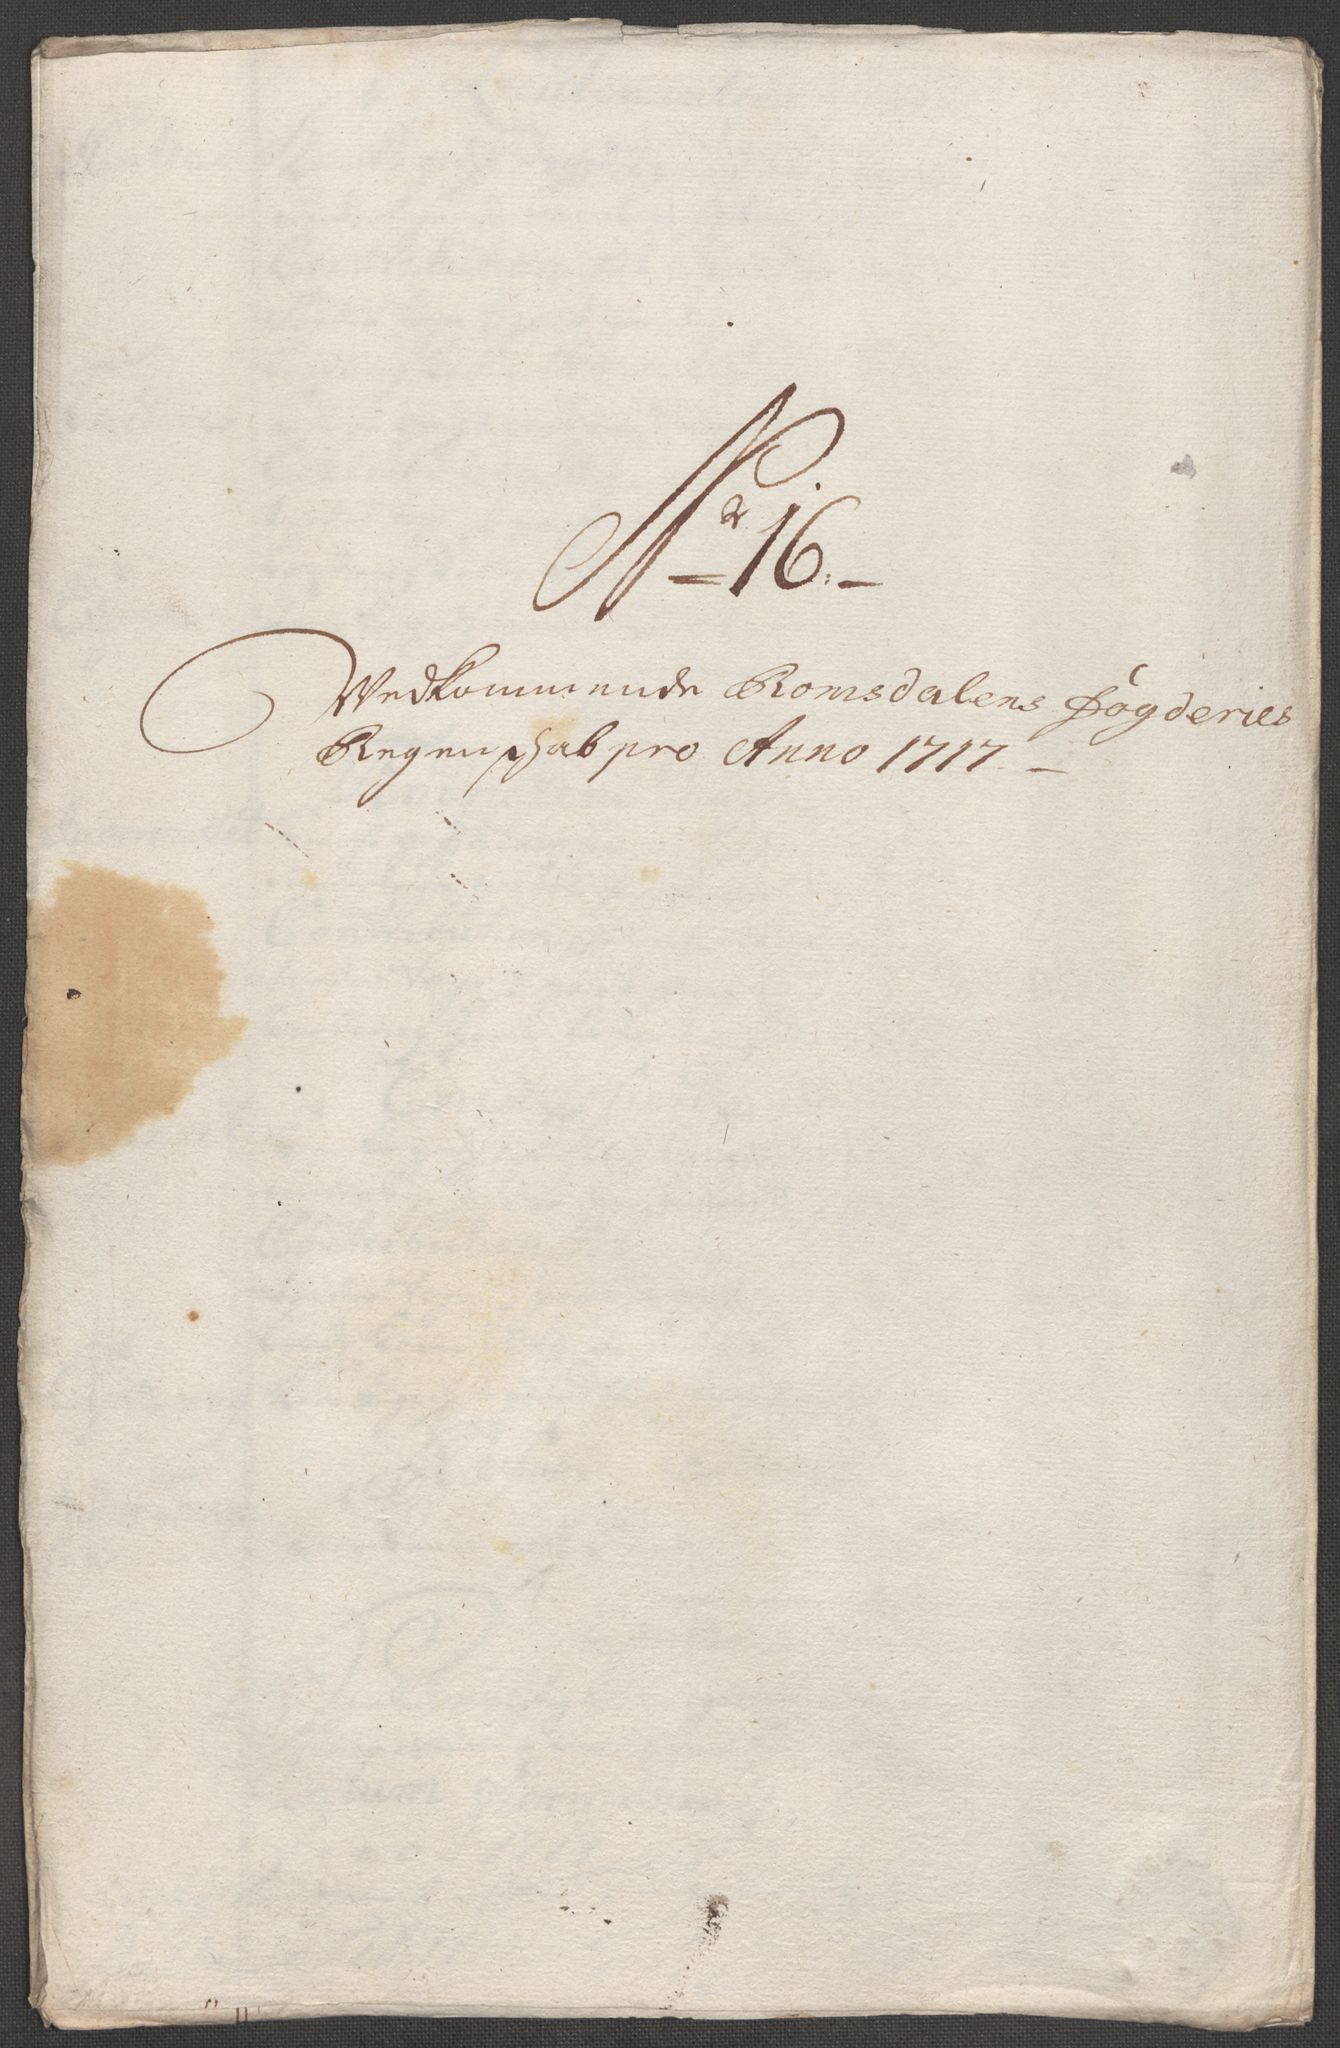 No 16.
Vedkommende Romsdalens Fögderies
Regenskab pro Anno 1717